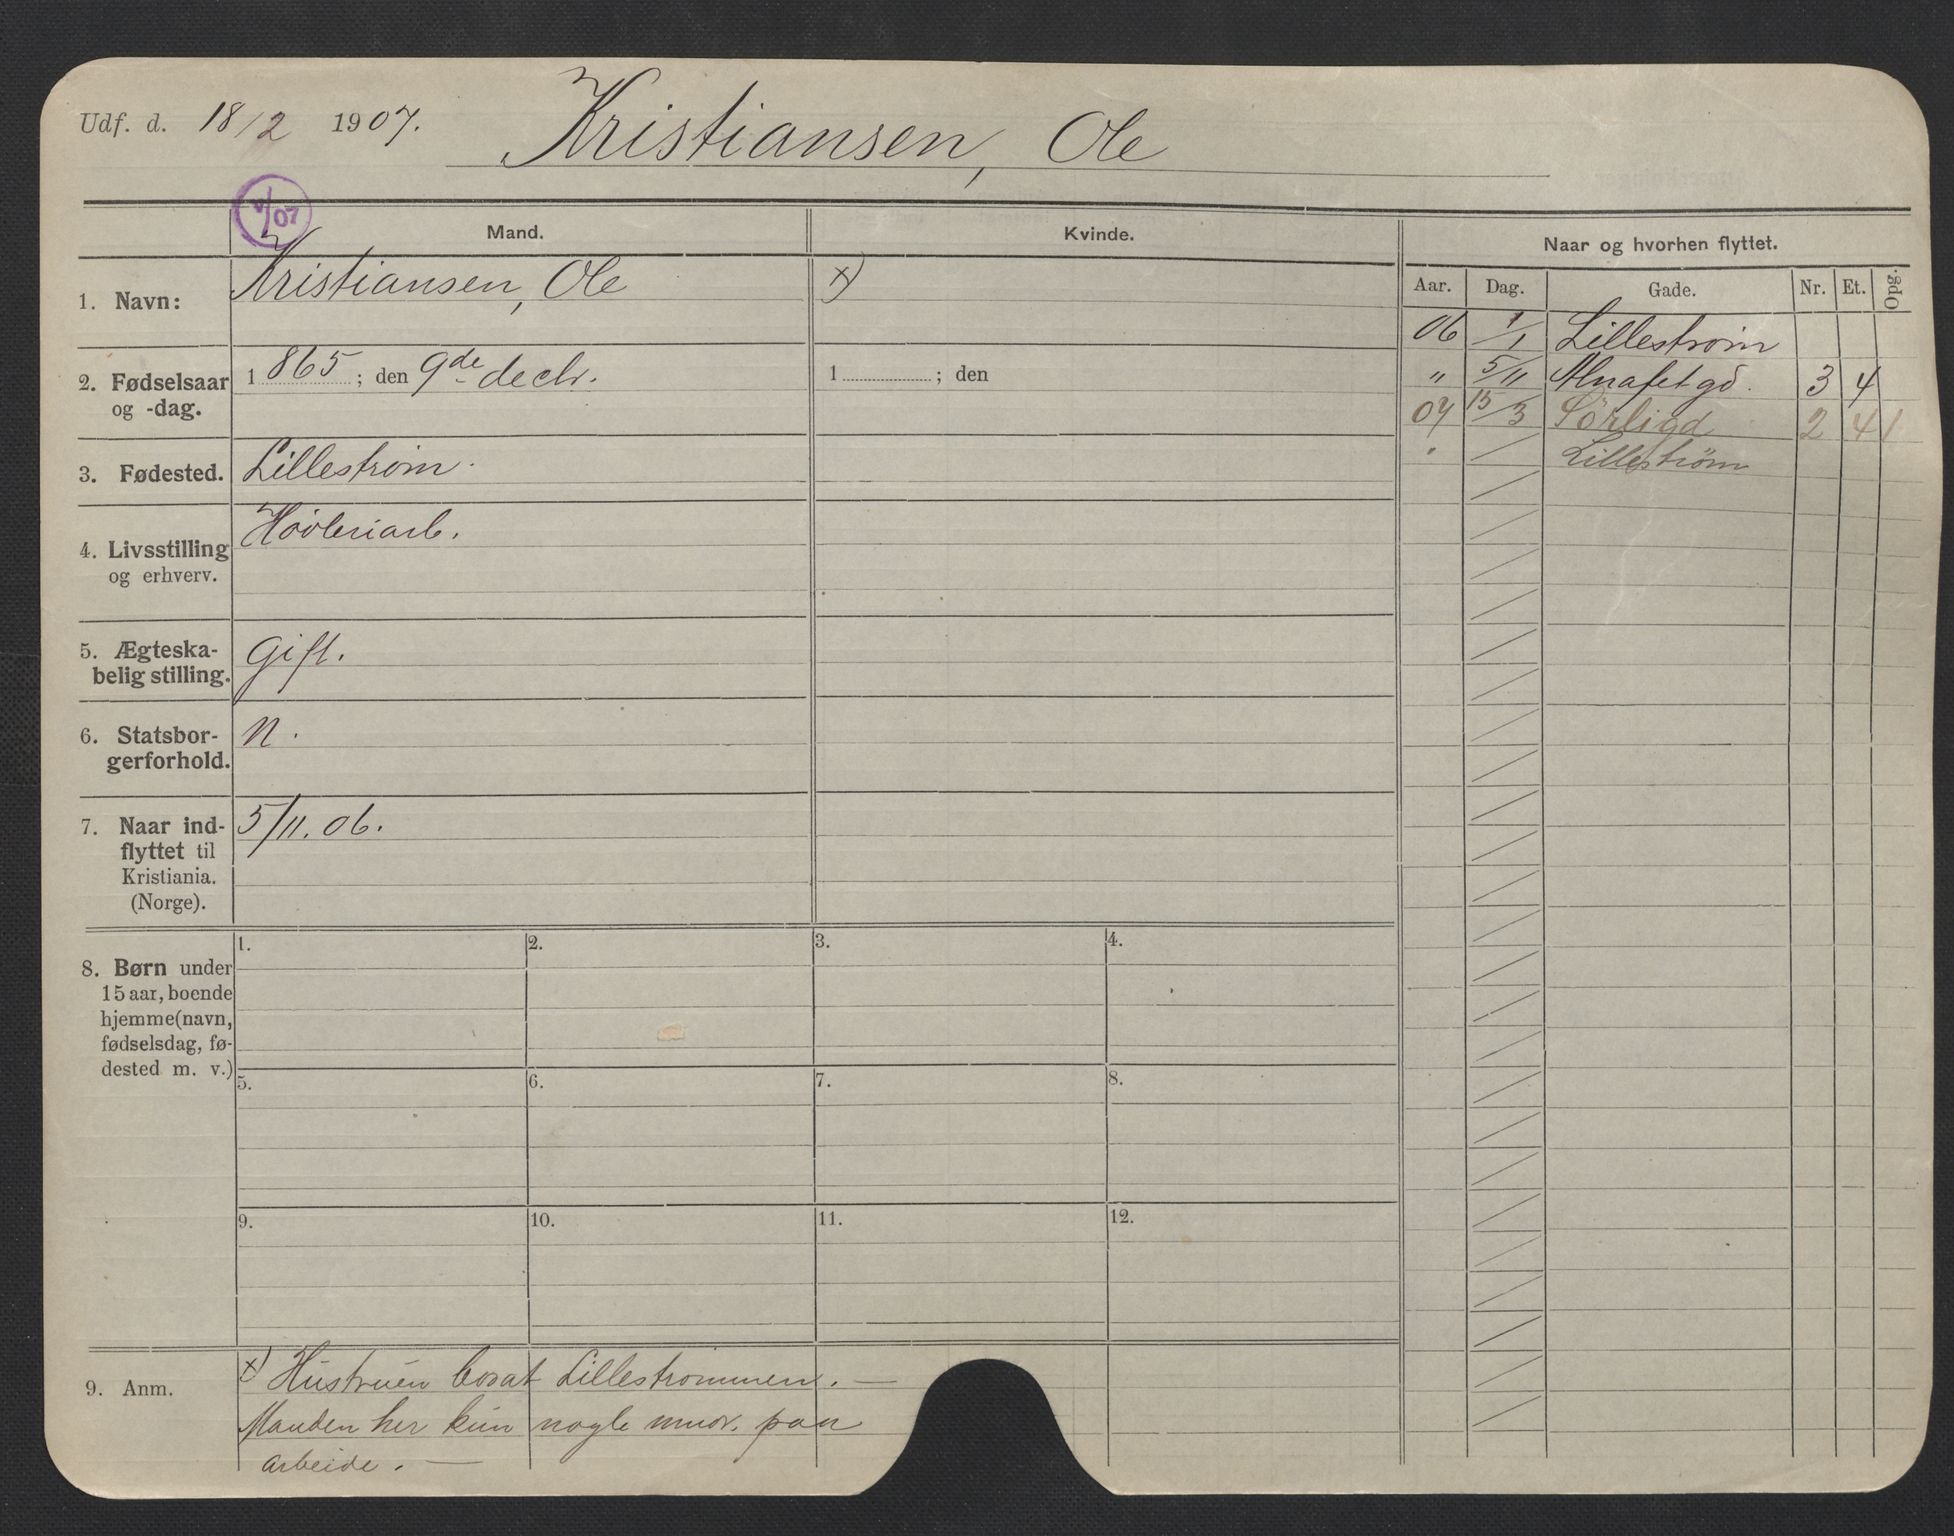 Udf. d. 18/2 1907. Kristiansen, Ole
V/07
Mand. Kvinde. Naar og hvorhen flyttet.
Aar. Dag. Gade. Nr. Et. Opg.
1. Navn: Kristiansen, Ole x)
2. Fødselsaar og -dag. 1 865; den 9de decbr. 1 ; den
3. Fødested. Lillestrøm.
4. Livsstilling og erhverv. Høvleriarb.
5. Ægteska-
belig stilling. Gift.
6. Statsbor-
gerforhold. N.
7. Naar ind-
flyttet til
Kristiania.
(Norge). 5/11. 06.
06 1/1 Lillestrøm
" 5/11 Almafet gd. 3 4
07 15/3 Sørligd 2 4 1
" / Lillestrøm
8. Børn under
15 aar, boende
hjemme (navn,
fødselsdag, fø-
dested m. v.)
1. 2. 3. 4.
5. 6. 7. 8.
9. 10. 11. 12.
9. Anm. x) Hustruen bosat Lillestrømmen. —
Manden her kun nogle mndr. paa
arbeide. —